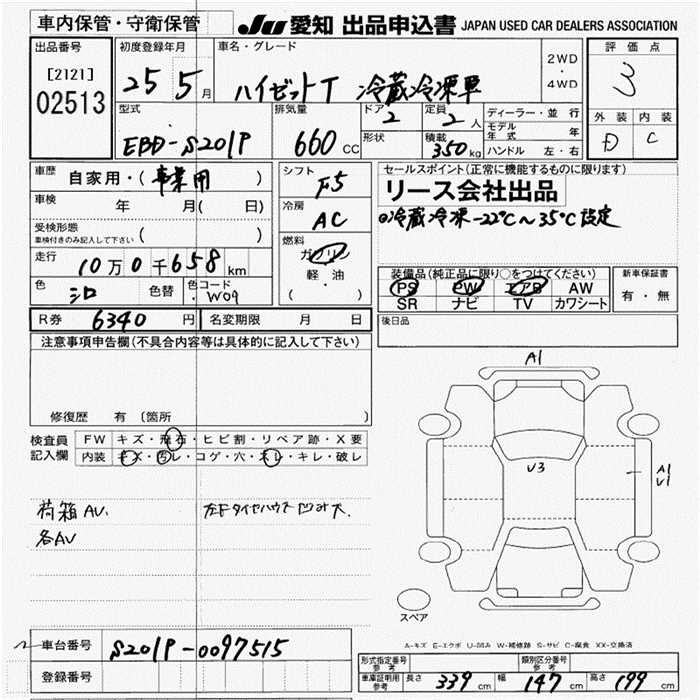 車内保管・守衛保管
JU 愛知 出品申込書 JAPAN USED CAR DEALERS ASSOCIATION
出品番号
[2121]
02513
初度登録年月
25 5月
車名・グレード
ハイゼットT 冷蔵冷凍車
2WD
・
4WD
評価点
3
外装 内装
D C
型式
EBD-S201P
排気量
660 CC
ドア
2
定員
2人
形状
積載
350kg
ディーラー・並行
モデル年式 年
ハンドル 左・右
車歴
自家用・(事業用)
車検
年 月( 日)
受検形態
車検付きのみ記入して下さい ( )
走行
10万0千658km
色
シロ
色替
色コード
W09
シフト
F5
冷房
AC
燃料
ガソリン
軽・油
( )
セールスポイント(正常に機能するものに限ります)
リース会社出品
◎冷蔵冷凍-22℃~35℃設定
装備品(純正品に限り○をつけてください)
PS PW エアB AW
SR ナビ TV カワシート
新車保証書
有・無
R券 6340円
名変期限 月 日
後日品
注意事項申告欄(不具合内容等は具体的に記入して下さい)
修復歴 有 (箇所
検査員記入欄
FW キズ・飛石・ヒビ割・リペア跡・X要
内装 キズ・汚レ・コゲ・穴・スレ・キレ・破レ
荷箱AU.
各AU
左Fタイヤハウス凹み大.
A1
U3
A1
U1
スペア
A-キズ E-エクボ U-凹み W-補修跡 S-サビ C-腐食 XX-交換済
車台番号
S201P-0097515
登録番号
形式指定番号
参考
類別区分番号
参考
車庫証明用
参考
長さ 339cm 幅 147cm 高さ 199cm